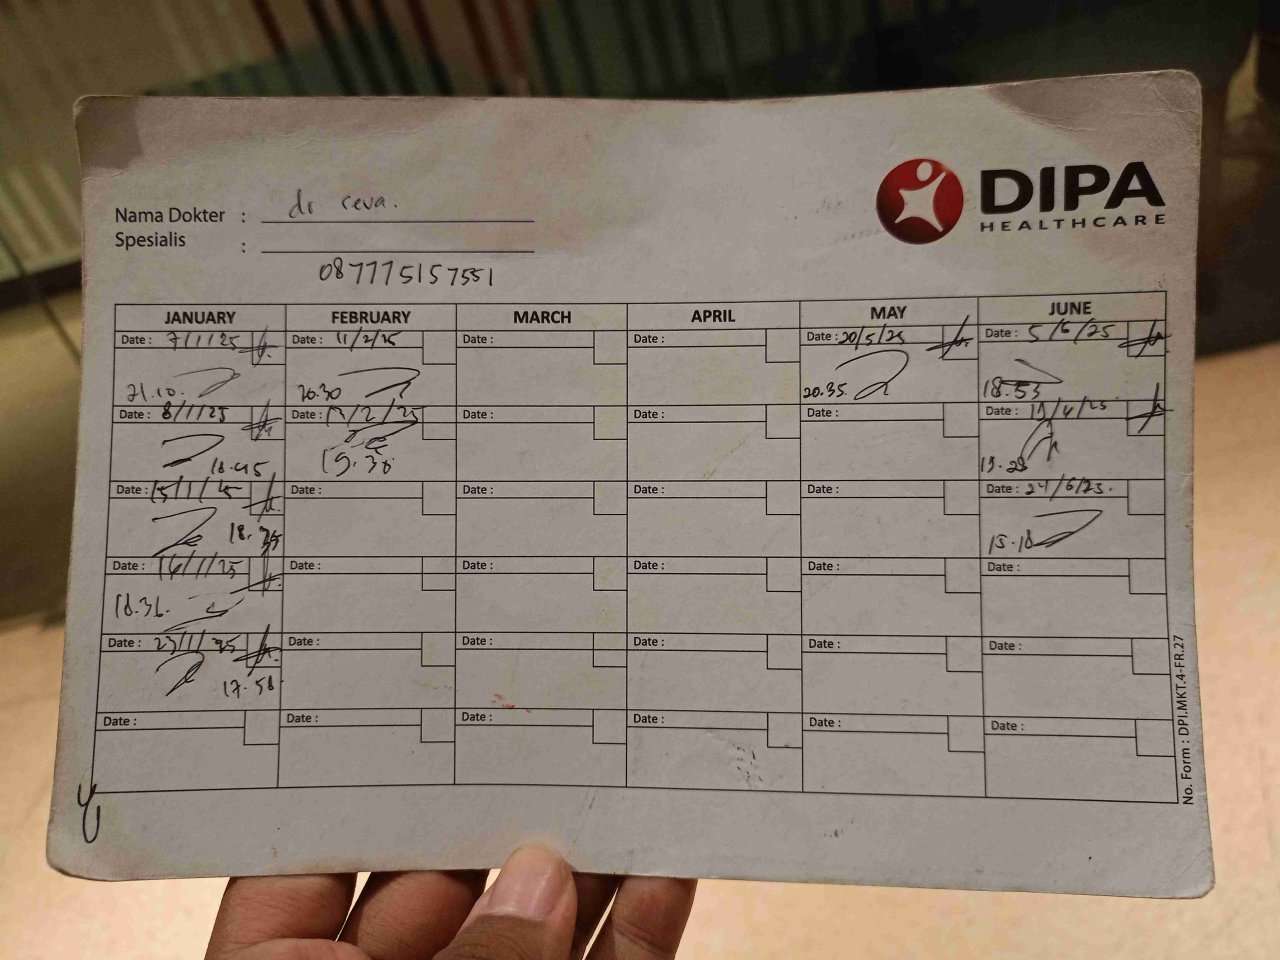 DIPA
HEALTHCARE
Nama Dokter : dr reva.
Spesialis :
087775157551
JANUARY FEBRUARY MARCH APRIL MAY JUNE
Date : 7/1/25 Date : 11/2/25 Date : Date : Date : 20/5/25 Date : 5/6/25
21.10. 20.30 20.35 18.53
Date : 8/1/25 Date : Date : Date : Date : Date :
18.45 19.30
Date : 15/1/25 Date : Date : Date : Date : Date : 24/6/25.
18. 15.18
Date : 16/1/25 Date : Date : Date : Date : Date :
18.36.
Date : 23/1/25 Date : Date : Date : Date : Date :
17.58
Date : Date : Date : Date : Date : Date :
No. Form : DPI.MKT.4-FR.27